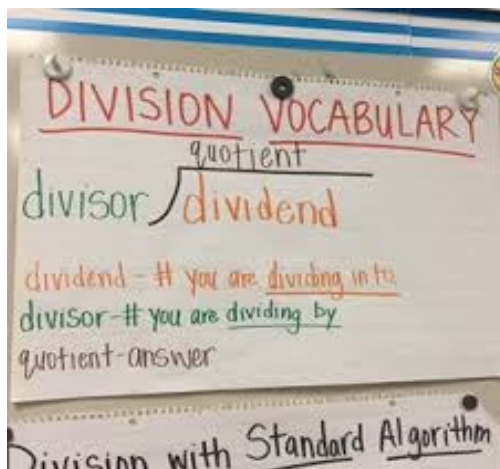 DIVISION VOCABULARY
quotient
divisor dividend
dividend - # you are dividing in to
divisor - # you are dividing by
quotient - answer
Division with Standard Algorithm